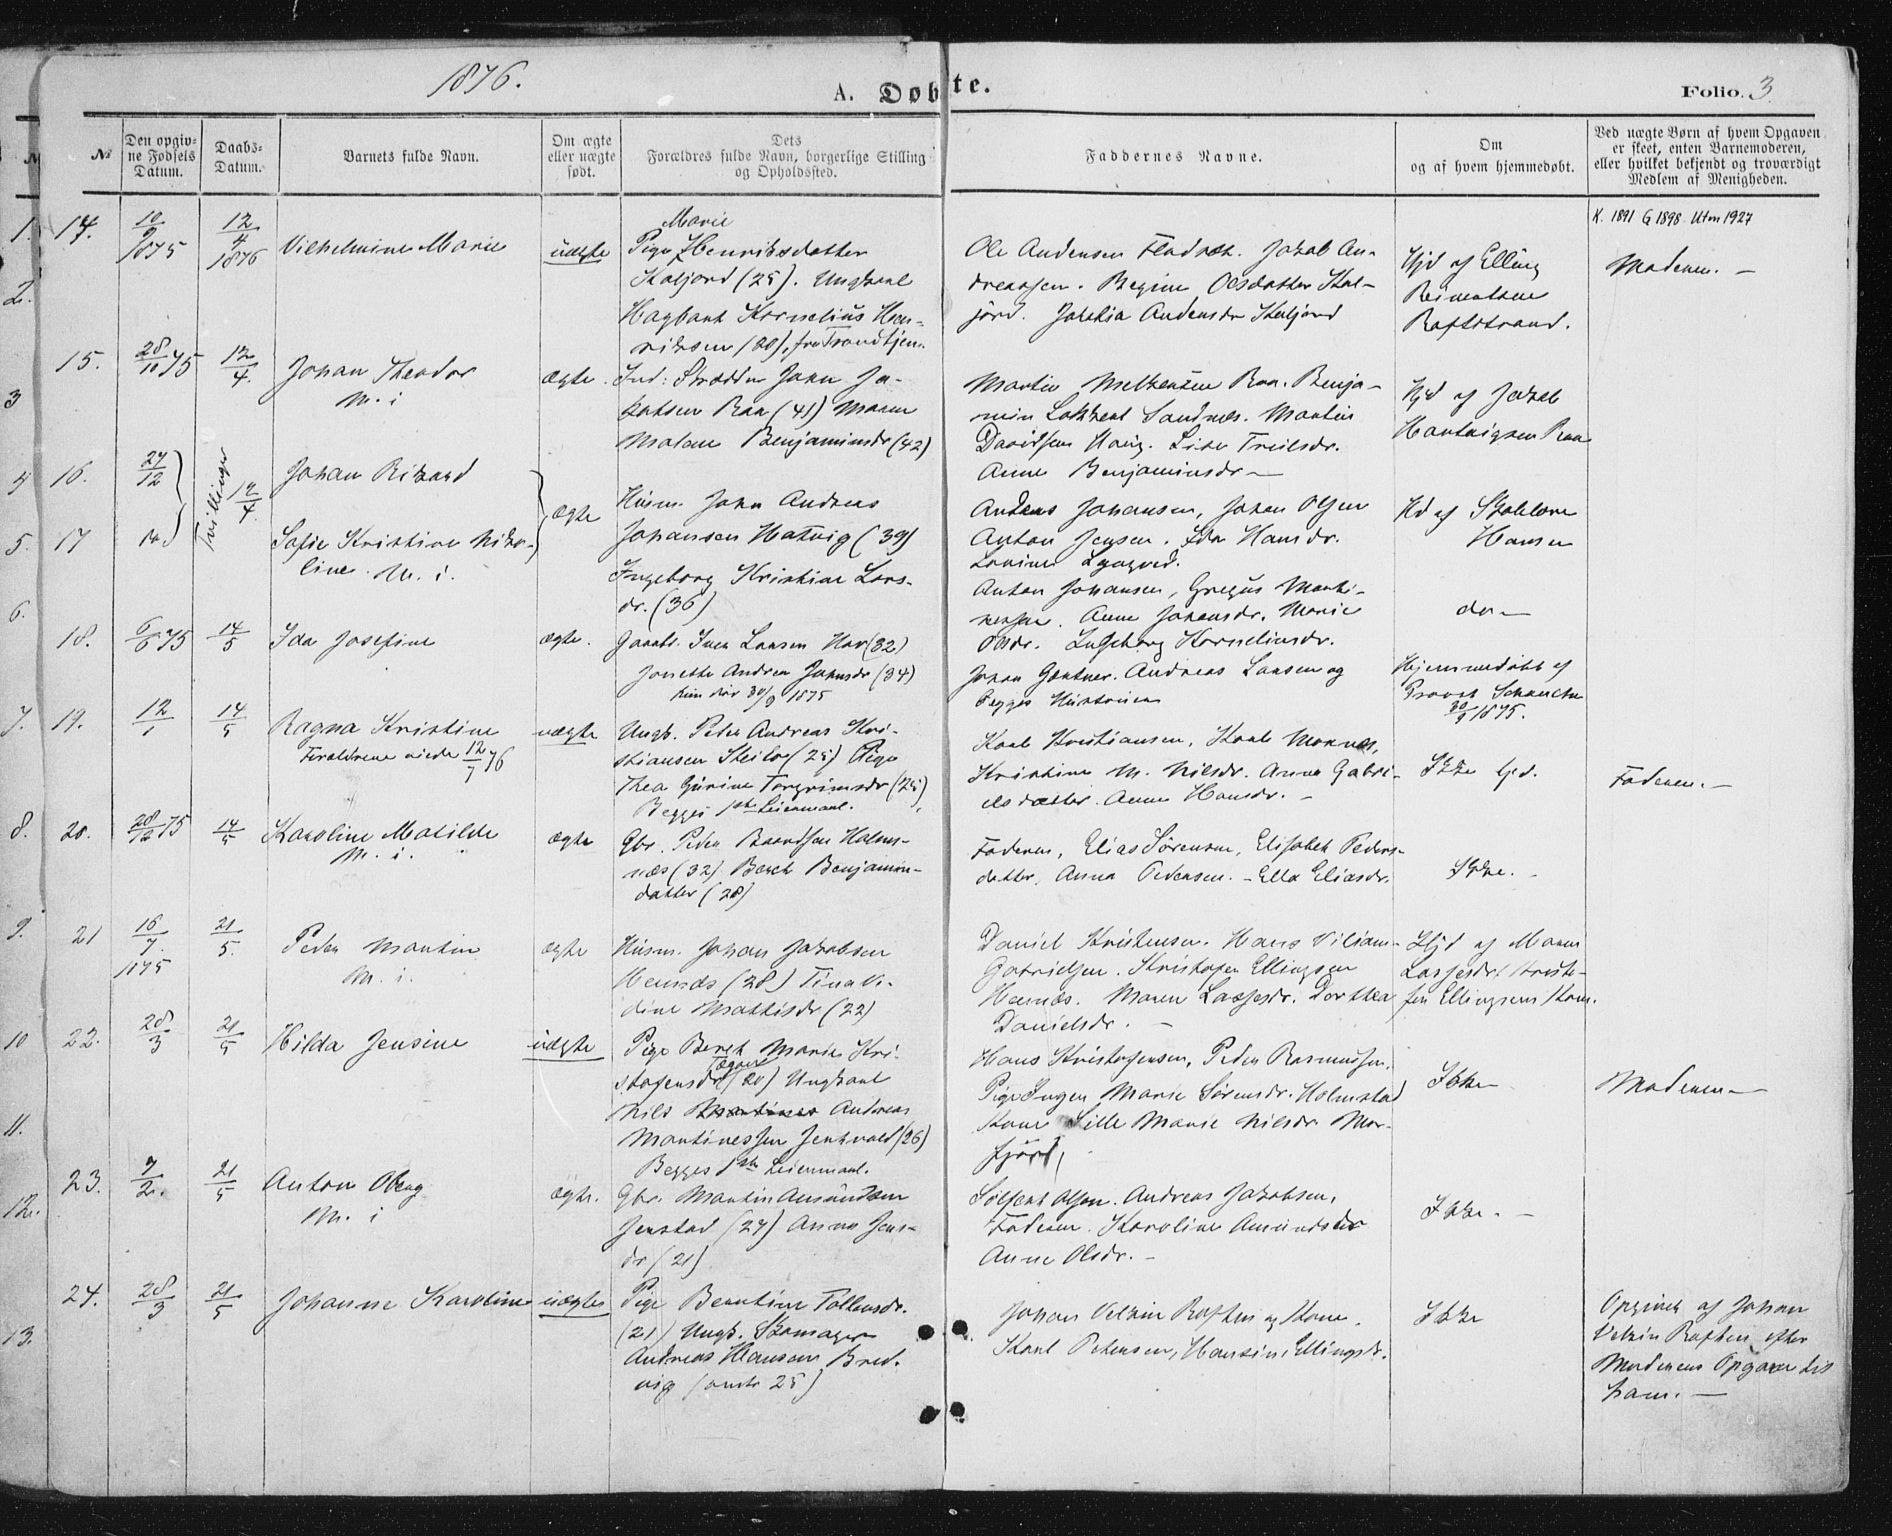 1876.
A. Døbte.
Folio. 3.
№
Den opgivne Fødsels Datum.
Daabs-Datum.
Barnets fulde Navn.
Om ægte eller uægte født.
Dets Forældres fulde Navn, borgerlige Stilling og Opholdssted.
Faddernes Navne.
Om og af hvem hjemmedøbt.
Ved uægte Børn af hvem Opgaven er skeet, enten Barnemoderen, eller hvilket bekjendt og troværdigt Medlem af Menigheden.
K. 1891 G 1898 Utm 1927
14. 10/9 1875 12/4 1876 Vilhelmine Marie uægte
Marie
Pige Henriksdatter
(25). Ungkarl
Hagbart Kornelius Hen-
riksen (20), fra Trondhjem
Ole Andersen Jakob An-
dreassen. Regine Olsdatter Kal-
jord. Andersdr Kaljord
Hjd af Elling
Reinertsen
Raftstrand.
Moderen. —
15. 28/10 75 12/4 Johan Theodor
M. i
ægte. Ind: John Ja-
kobsen Raa (41) Maren
Malene Benjaminsdr (42)
Martin Raa. Benja-
min Sandnes. Martin
Davidsen Lise Troilsdr.
Anne Benjaminsdr —
Hjd af Jakob
Hartvigsen Raa
16. 27/12 Tvillinger 12/4 Johan Rikard
17 do Sofie Kristine Niko-
line. M. i.
ægte
Husm. John Andreas
Johansen Hatvig (39)
Ingeborg Kristine Lars-
dr. (36)
Anders Johansen, Johan Olsen
Anton Jensen. Ida Hansdr.
Lovine Lyngved.
Anton Johansen, Gregus Marti-
nessen. Anne Johansdr. Marie
Olsdr. Ingeborg Korneliusdr.
Hd af Skolelærer
Hansen
do —
18. 6/6 75 14/5 Ida Josefine ægte.
Gaardb. Iver Larsen Hov (32)
Jonette Andrea Johnsdr (34)
hun dør 30/9 1875
Johan Gartner. Andreas Larsen og
Begges Hustruer
Hjemmedøbt af
Provst
30/9 1875.
19. 12/1 14/5 Ragna Kristine
Forældrene viede 12/7 76
uægte
Ungk. Peter Andreas Kri-
stiansen Steilo (25) Pige
Thea Gurine Torgrimsdr (25)
Begges 1ste Leiermaal.
Karl Kristiansen, Karl
Kristine M. Nilsdr. Anna Gabri-
elsdatter. Anne Hansdr. —
Ikke hjd.
Faderen. —
20. 28/12 75 14/5 Karoline Matilde
M. i.
ægte
Gbr. Peder Baardsen Holm-
næs (32) Berit Benjamin-
datter (28)
Faderen, Elias Sørensen, Elisabet Peders-
datter, Anna Pedersen. — Ella Eliasdr.
Ikke. —
21 16/7 1875 21/5. Peder Martin
M. i.
ægte
Husm. Johan Jakobsen
Hennæs (28) Tina Ni-
dine Mattisdr (22)
Daniel Kristensen. Hans Viliam
Gabrielsen. Kristofer Ellingsen
Hennæs. Maren Lassesdr. Dorthea
Danielsdr. —
Hjd af Maren
Lassesdr. Kristo-
fer Ellingsens Kone.
22. 28/3 21/5 Hilda Jensine uægte
Pige Berit Marie Kri-
stofersdr (20) Ungkarl
Nils Martines Andreas
Martinessen (26)
Begges 1ste Leiermaal.
Hans Kristofersen, Peder Rasmussen.
Pige Inger Marie Sørensdr. Holmstad
Kone Sille Marie Nilsdr Mor-
fjord,
Ikke —
Moderen —
23. 7/2. 21/5 Anton Oberg
M. i
ægte.
Gbr. Martin Amundsen
Jenstad (27) Anna Jens-
dr (21)
Olsen. Andreas Jakobsen,
Faderen. Karoline Amundsdr
Anne Olsdr. —
Ikke. —
24. 28/3 21/5 Johanne Karoline uægte
Pige Berntine Tollevsdr.
(21) Ungk. Skomager
Andreas Hansen Bred-
vig (omtr 25)
Johan Raften og Kone.
Karl Petersen, Ellingsdr.
Ikke
Opgivet af Johan
Raften efter
Moderens Opgave til
ham. —
1.
2.
3
4
5.
6.
7.
8.
9.
10
11.
12.
13.